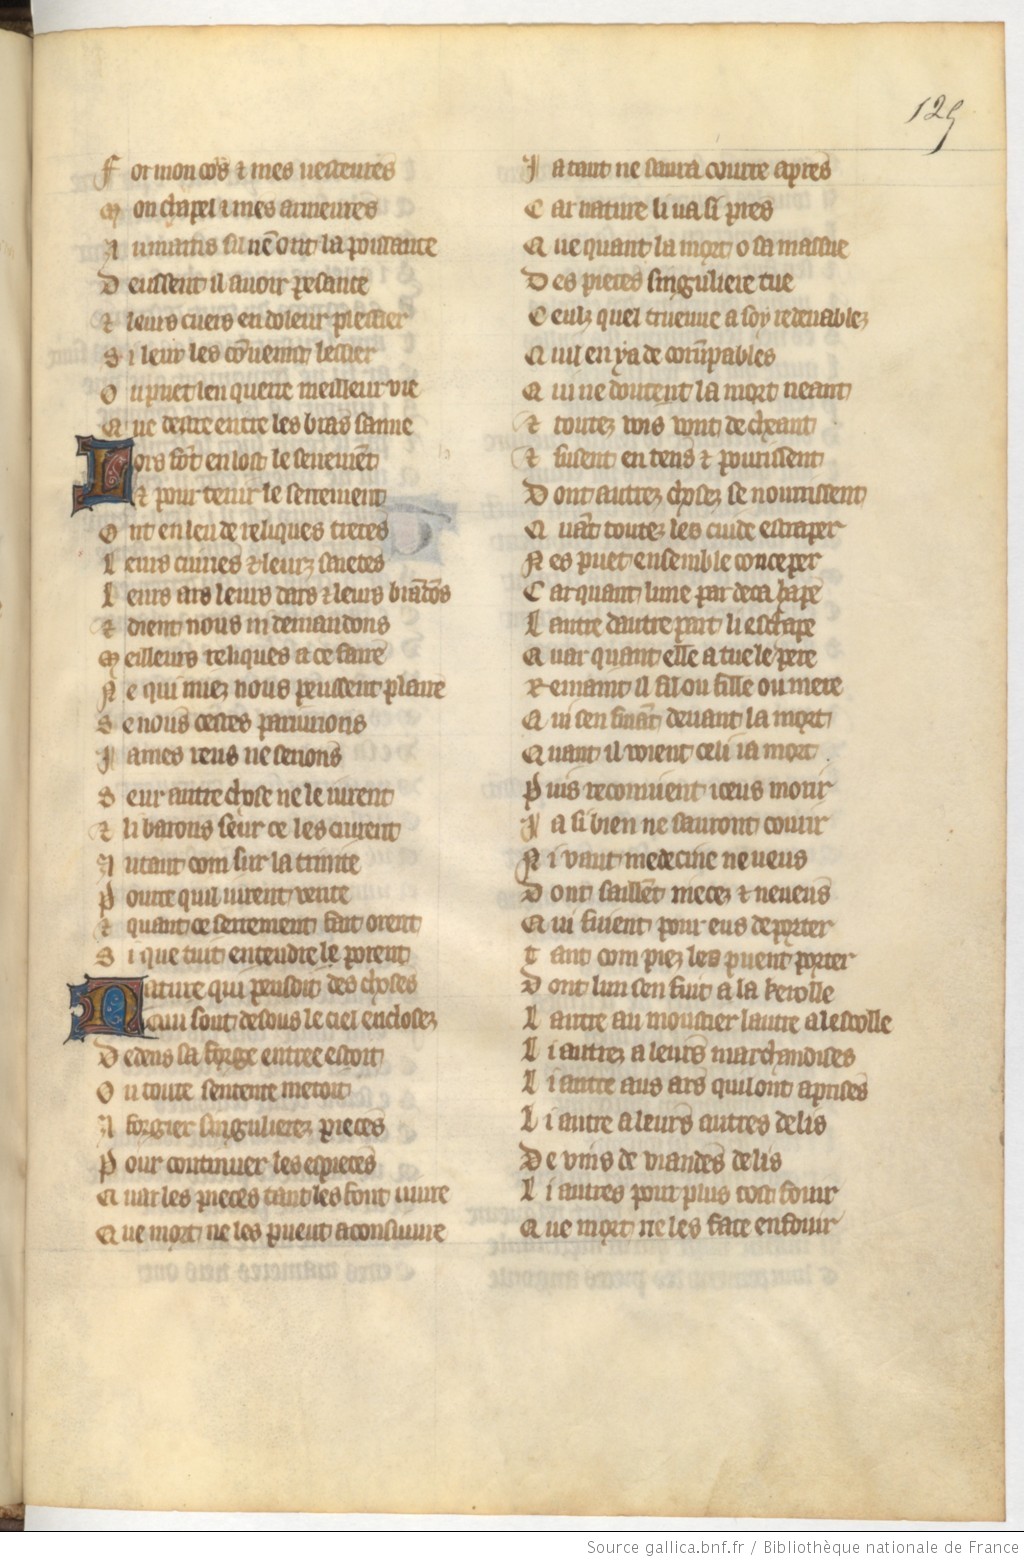 125
For mon cors & mes uesteures
Mon chapel & mes armeures
Au mains sil nen ont la poissance
Deussent il auoir pesance
Et leurs cuers en doleur plessier
Si leur les couuenist lessier
Ou puet len querre meilleur uie
Que destre entre les bras samie
Lors sont en lost le serement
Et pour tenir le serrement
Ont en leu de reliques tretes
Leurs cuiries & leurz saietes
Leurs ars leurs dars & leurs brandons
Et dient nous ni demandons
Meilleurs reliques a ce faire
Ne qui miez nous peussent plaire
Se nous cestes pariurions
James reus ne serions
Seur autre chose ne le iurent
Et li barons seur ce les crurent
Autant com sur la trinite
Pource quil iurent uerite
Et quant ce serrement fait orent
Si que tuit entendre le porent
Nature qui pensoit des choses
Qui sont desous le ciel enclosez
Dedens sa forge entree estoit
Ou toute sentente metoit
A forgier singulierez pieces
Pour continuer les espieces
Quar les pieces tant les font uiure
Que mort ne les puent aconsuiure
Ja tant ne saura courre apres
Car nature li ua si pres
Que quant la mort o sa massue
Des pieces singuliere tue
Ceulz quel trueuue a soy redeuablez
Quil en ya de corrunpables
Qui ne doutent la mort neant
Et toutez vois vont decheant
Et susent en tens & pourissent
Dont autrez chosez se nourrissent
Quant toutez les cuide estraper
Nes puet ensemble conceper
Car quant lune par deca hape
Lautre dautre part li eschape
Quar quant elle a tue le pere
Remaint il fil ou fille ou mere
Qui sen fuient deuant la mort
Quant il voient celi ia mort
Puis reconuient iceus morir
Ja si bien ne sauront courir
Ni vaut medecine ne veus
Dont saillent niecez & neueus
Qui fuient pour eus deporter
Tant com piez les puent porter
Dont lun sen fuit a la kerolle
Lautre au moustier lautre a lescolle
Li autrez a leurs marchandises
Li autre aus ars quil ont aprises
Li autre a leurs autres delis
De vins de viandes de lis
Li autres pour plus tost fouir
Que mort ne les face enfouir
Source gallica.bnf.fr / Bibliothèque nationale de France